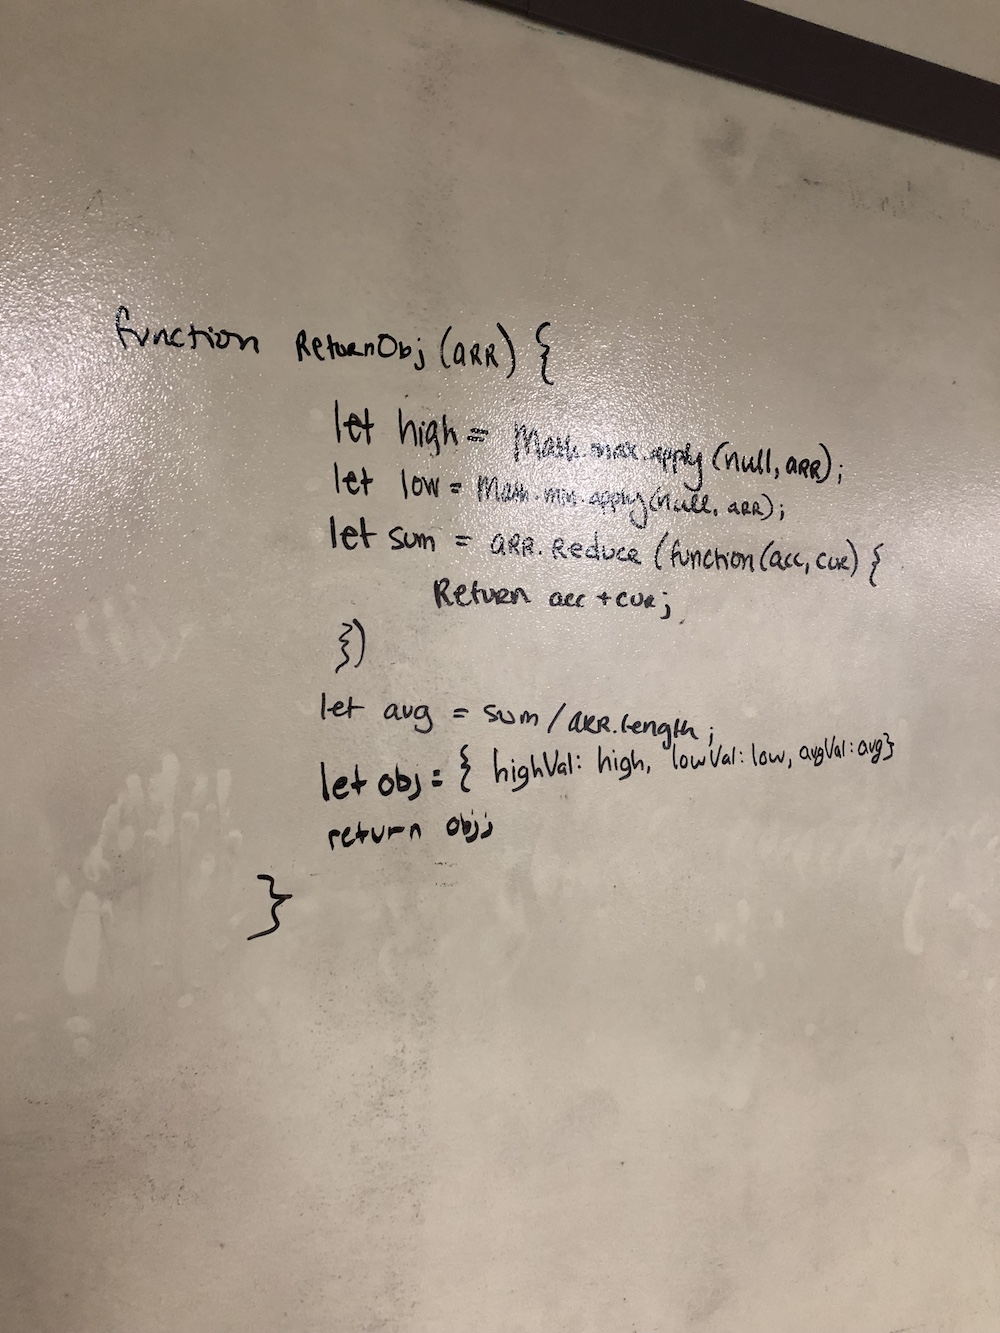 function ReturnObj (aRR) {
let high = Math.max.apply (null, aRR);
let low = Math.min.apply(null, aRR);
let sum = aRR.Reduce (function(acc, cuR) {
Return acc + cuR;
})
let avg = sum / aRR.length;
let obj = { highVal: high, lowVal: low, avgVal: avg}
return obj;
}